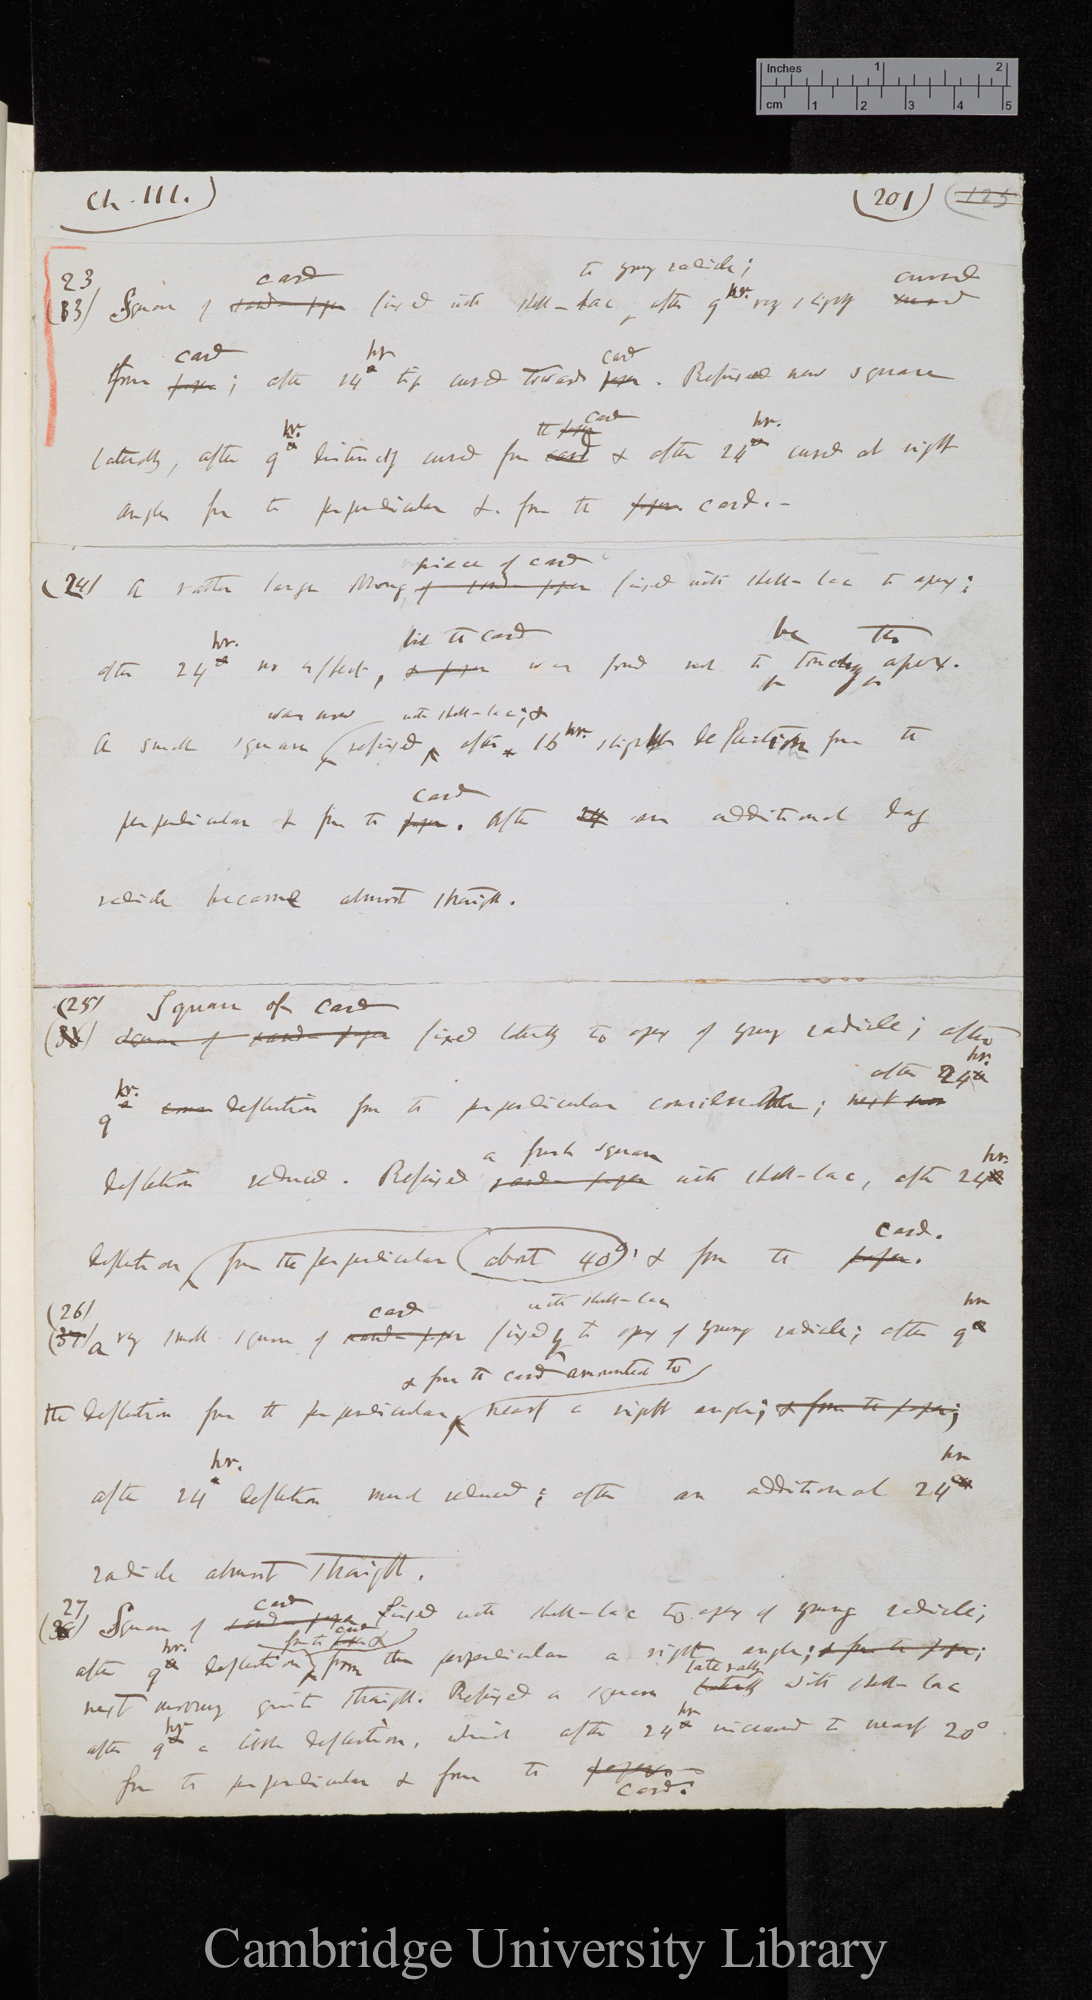 Inches 1 2
cm 1 2 3 4 5
Ch. III.) (201) (125
23 card to young radicle; curved
(33) Square of sand-paper fixed with shell-lac, after 9 hr. very slightly curved
card hr card
from paper; after 24 tip curved towards paper. Refixed new square
hr. the paper card hr.
laterally, after 9 distinctly curved from card & after 24 curved at right
angles from the perpendicular & from the paper card.-
piece of card
(24) A rather large oblong of sand-paper fixed with shell-lac to apex;
hr. but the card be the
after 24 no effect, & paper was found not to touching apex.
was now with shell-lac; &
A small square refixed, after 16 hr. slight deflection from the
card
perpendicular & from the paper. After 24 an additional day
radicle became almost straight.
(25) Square of card
Square of sand-paper fixed laterally to apex of young radicle; after
hr. after 24 hr.
9 deflection from the perpendicular considerable;
a fresh square hr.
deflection reduced. Refixed sand-paper with shell-lac, after 24
card.
deflection from the perpendicular (about 40°) & from the paper.
(26) card with shell-lac hr
(37) a very small square of sand-paper fixed to apex of young radicle; after 9
& from the card amounted to
the deflection from the perpendicular nearly a right angle; & from the paper;
hr. hr
after 24 deflection much reduced; after an additional 24
radicle almost straight.
27 card
Square of sand-paper fixed with shell-lac to apex of young radicle;
hr. from the card &
after 9 deflection from the perpendicular a right angle; & from the paper;
laterally
next morning quite straight. Refixed a square laterally with shell-lac
hr hr
after 9 a little deflection, which after 24 increased to nearly 20°
from the perpendicular & from the paper.
card.
Cambridge University Library